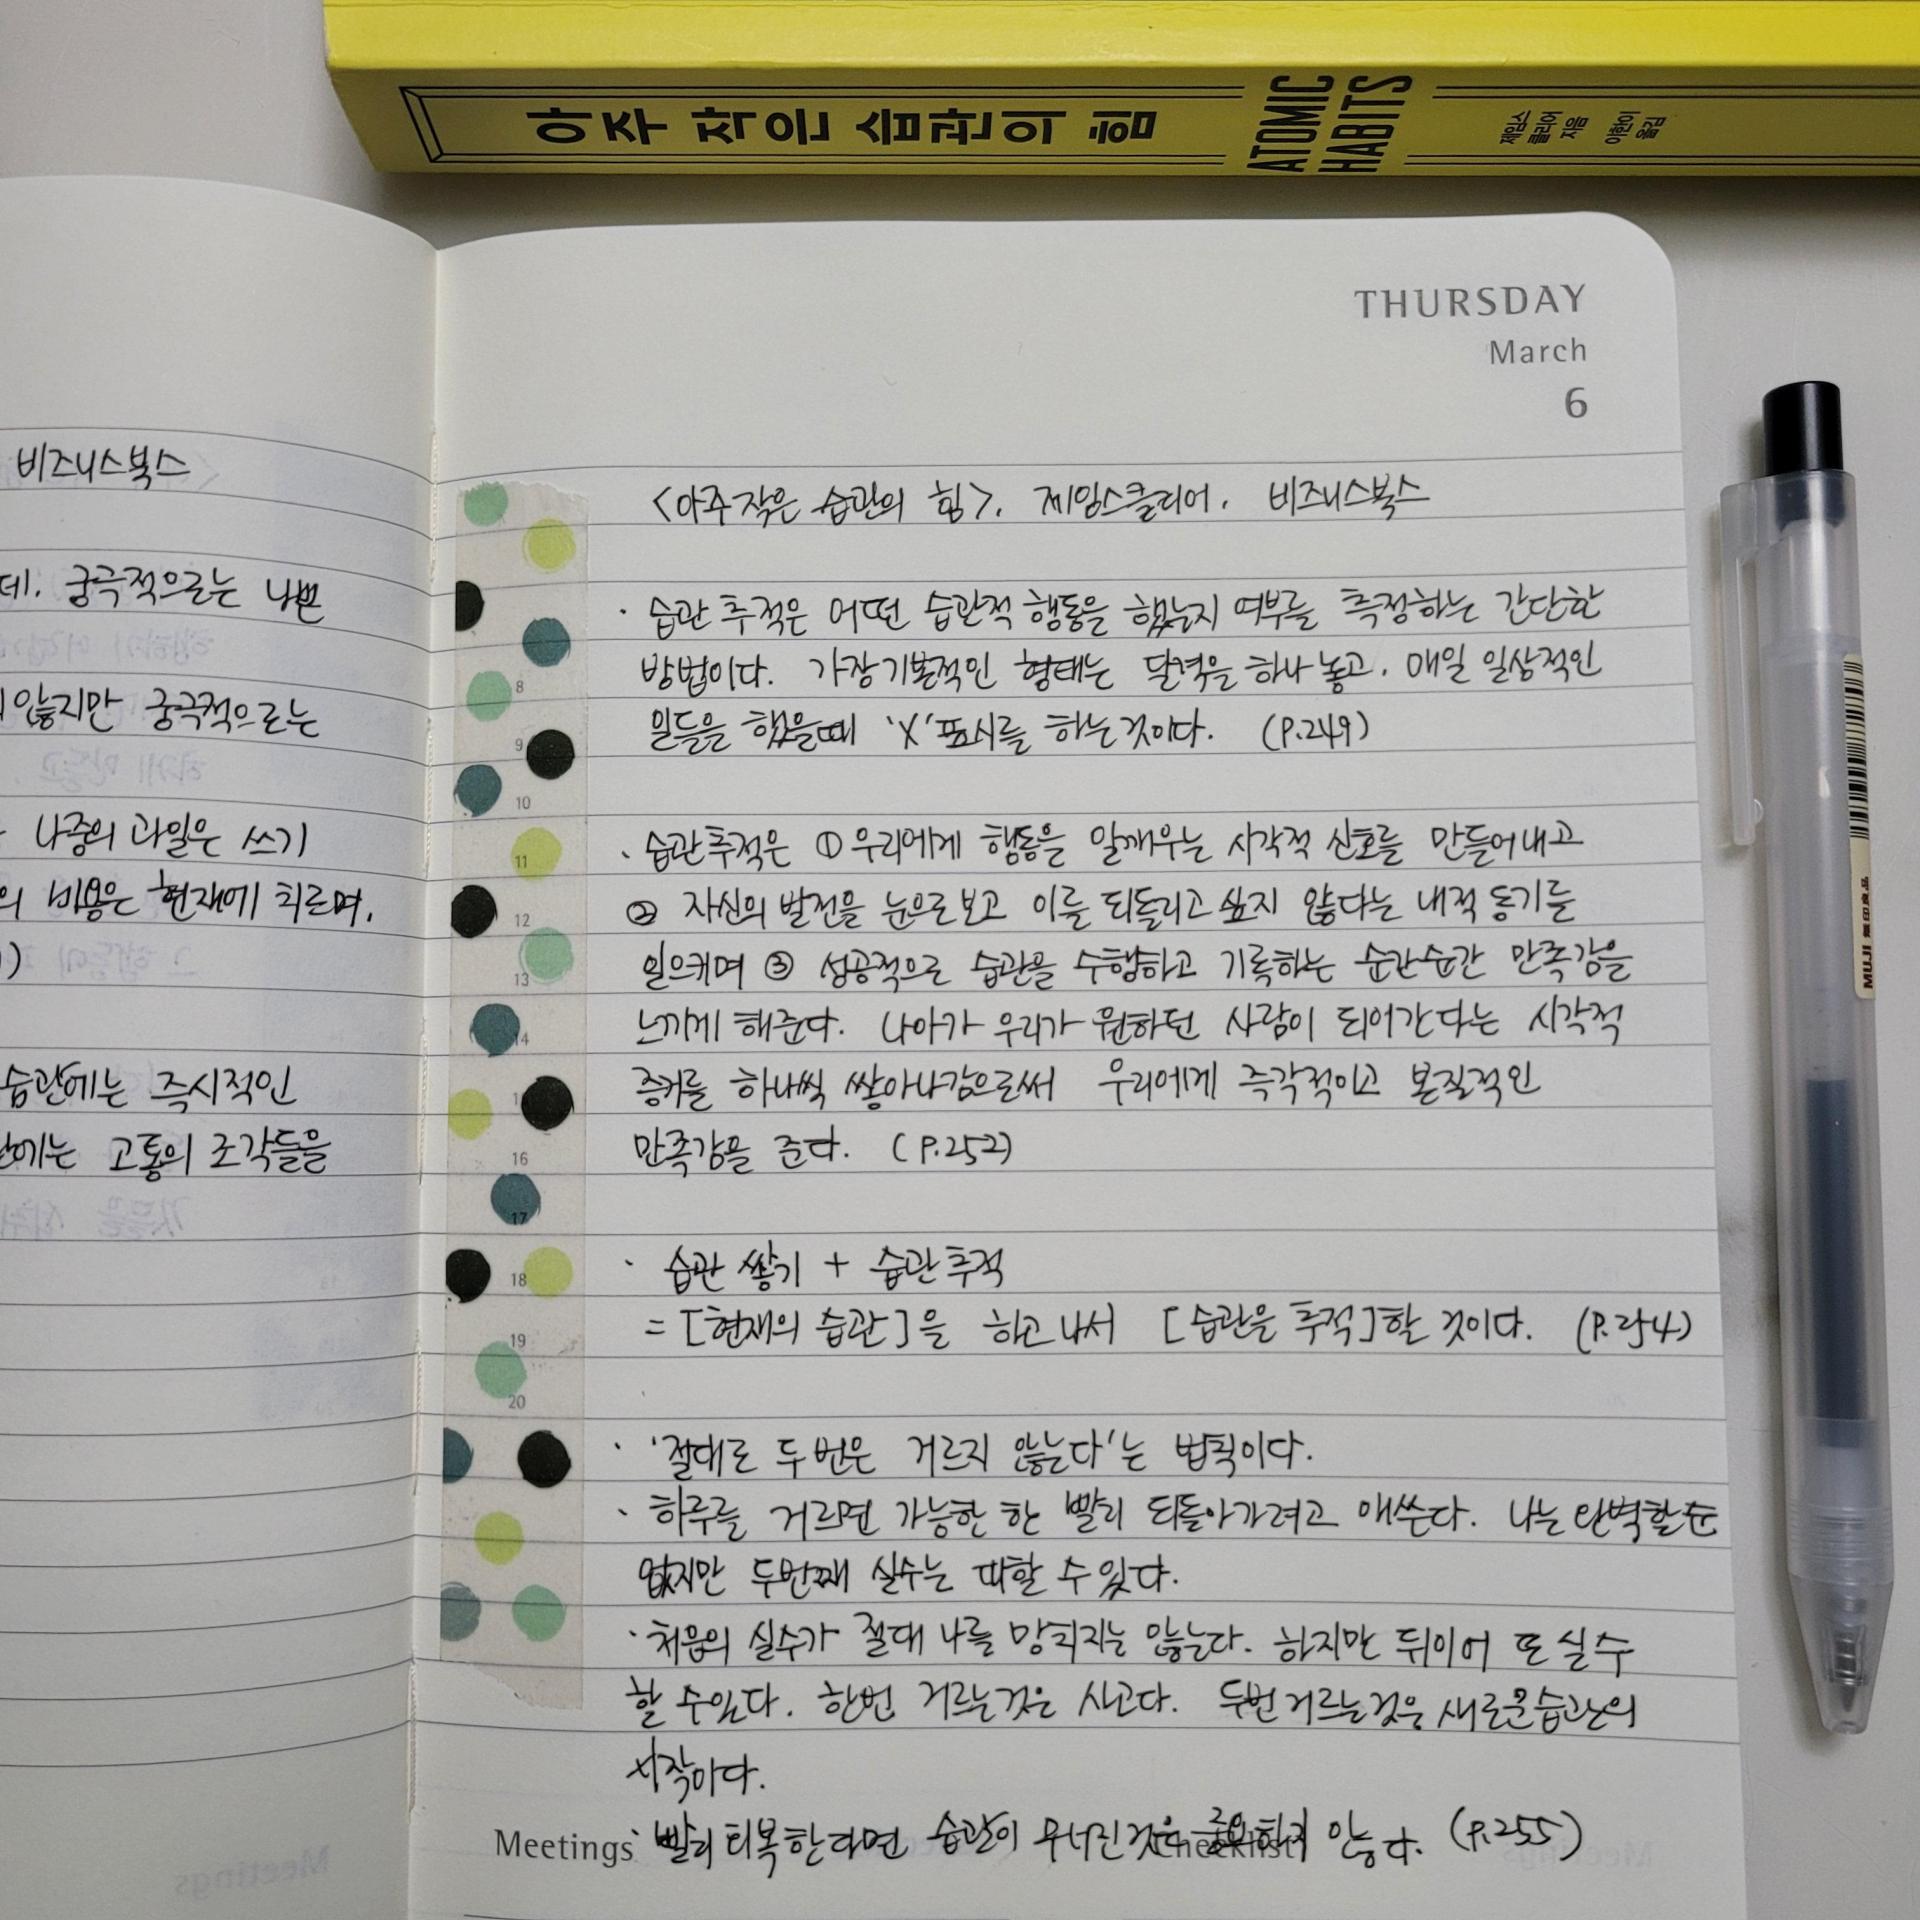 아주 작은 습관의 힘
ATOMIC
HABITS
제임스
클리어
지음
이한이
옮김
THURSDAY
March
6
비즈니스북스
데. 궁극적으로는 나쁜
않지만 궁극적으로는
나중의 과일은 쓰기
의 비용은 현재에 치르며,
습관에는 즉시적인
에는 고통의 조각들을
<아주 작은 습관의 힘>, 제임스클리어, 비즈니스북스
· 습관 추적은 어떤 습관적 행동을 했는지 여부를 측정하는 간단한
방법이다. 가장 기본적인 형태는 달력을 하나 놓고, 매일 일상적인
일들을 했을때 'X' 표시를 하는 것이다. (P.249)
· 습관추적은 ① 우리에게 행동을 일깨우는 시각적 신호를 만들어내고
② 자신의 발전을 눈으로 보고 이를 되돌리고 싶지 않다는 내적 동기를
일으키며 ③ 성공적으로 습관을 수행하고 기록하는 순간순간 만족감을
느끼게 해준다. 나아가 우리가 원하던 사람이 되어간다는 시각적
증거를 하나씩 쌓아나감으로써 우리에게 즉각적이고 본질적인
만족감을 준다. (P.252)
· 습관 쌓기 + 습관 추적
= [현재의 습관]을 하고 나서 [습관을 추적]할 것이다. (P.254)
· '절대로 두 번은 거르지 않는다'는 법칙이다.
· 하루를 거르면 가능한 한 빨리 되돌아가려고 애쓴다. 나는 완벽할 순
없지만 두번째 실수는 피할 수 있다.
· 처음의 실수가 절대 나를 망치지는 않는다. 하지만 뒤이어 또 실수
할 수있다. 한번 거르는 것은 사고다. 두번 거르는 것은 새로운 습관의
시작이다.
· 빨리 회복한다면 습관이 무너진 것은 중요하지 않다. (P.255)
8
9
10
11
12
13
14
16
17
18
19
20
Meetings
Checklist
MUJI 無印良品